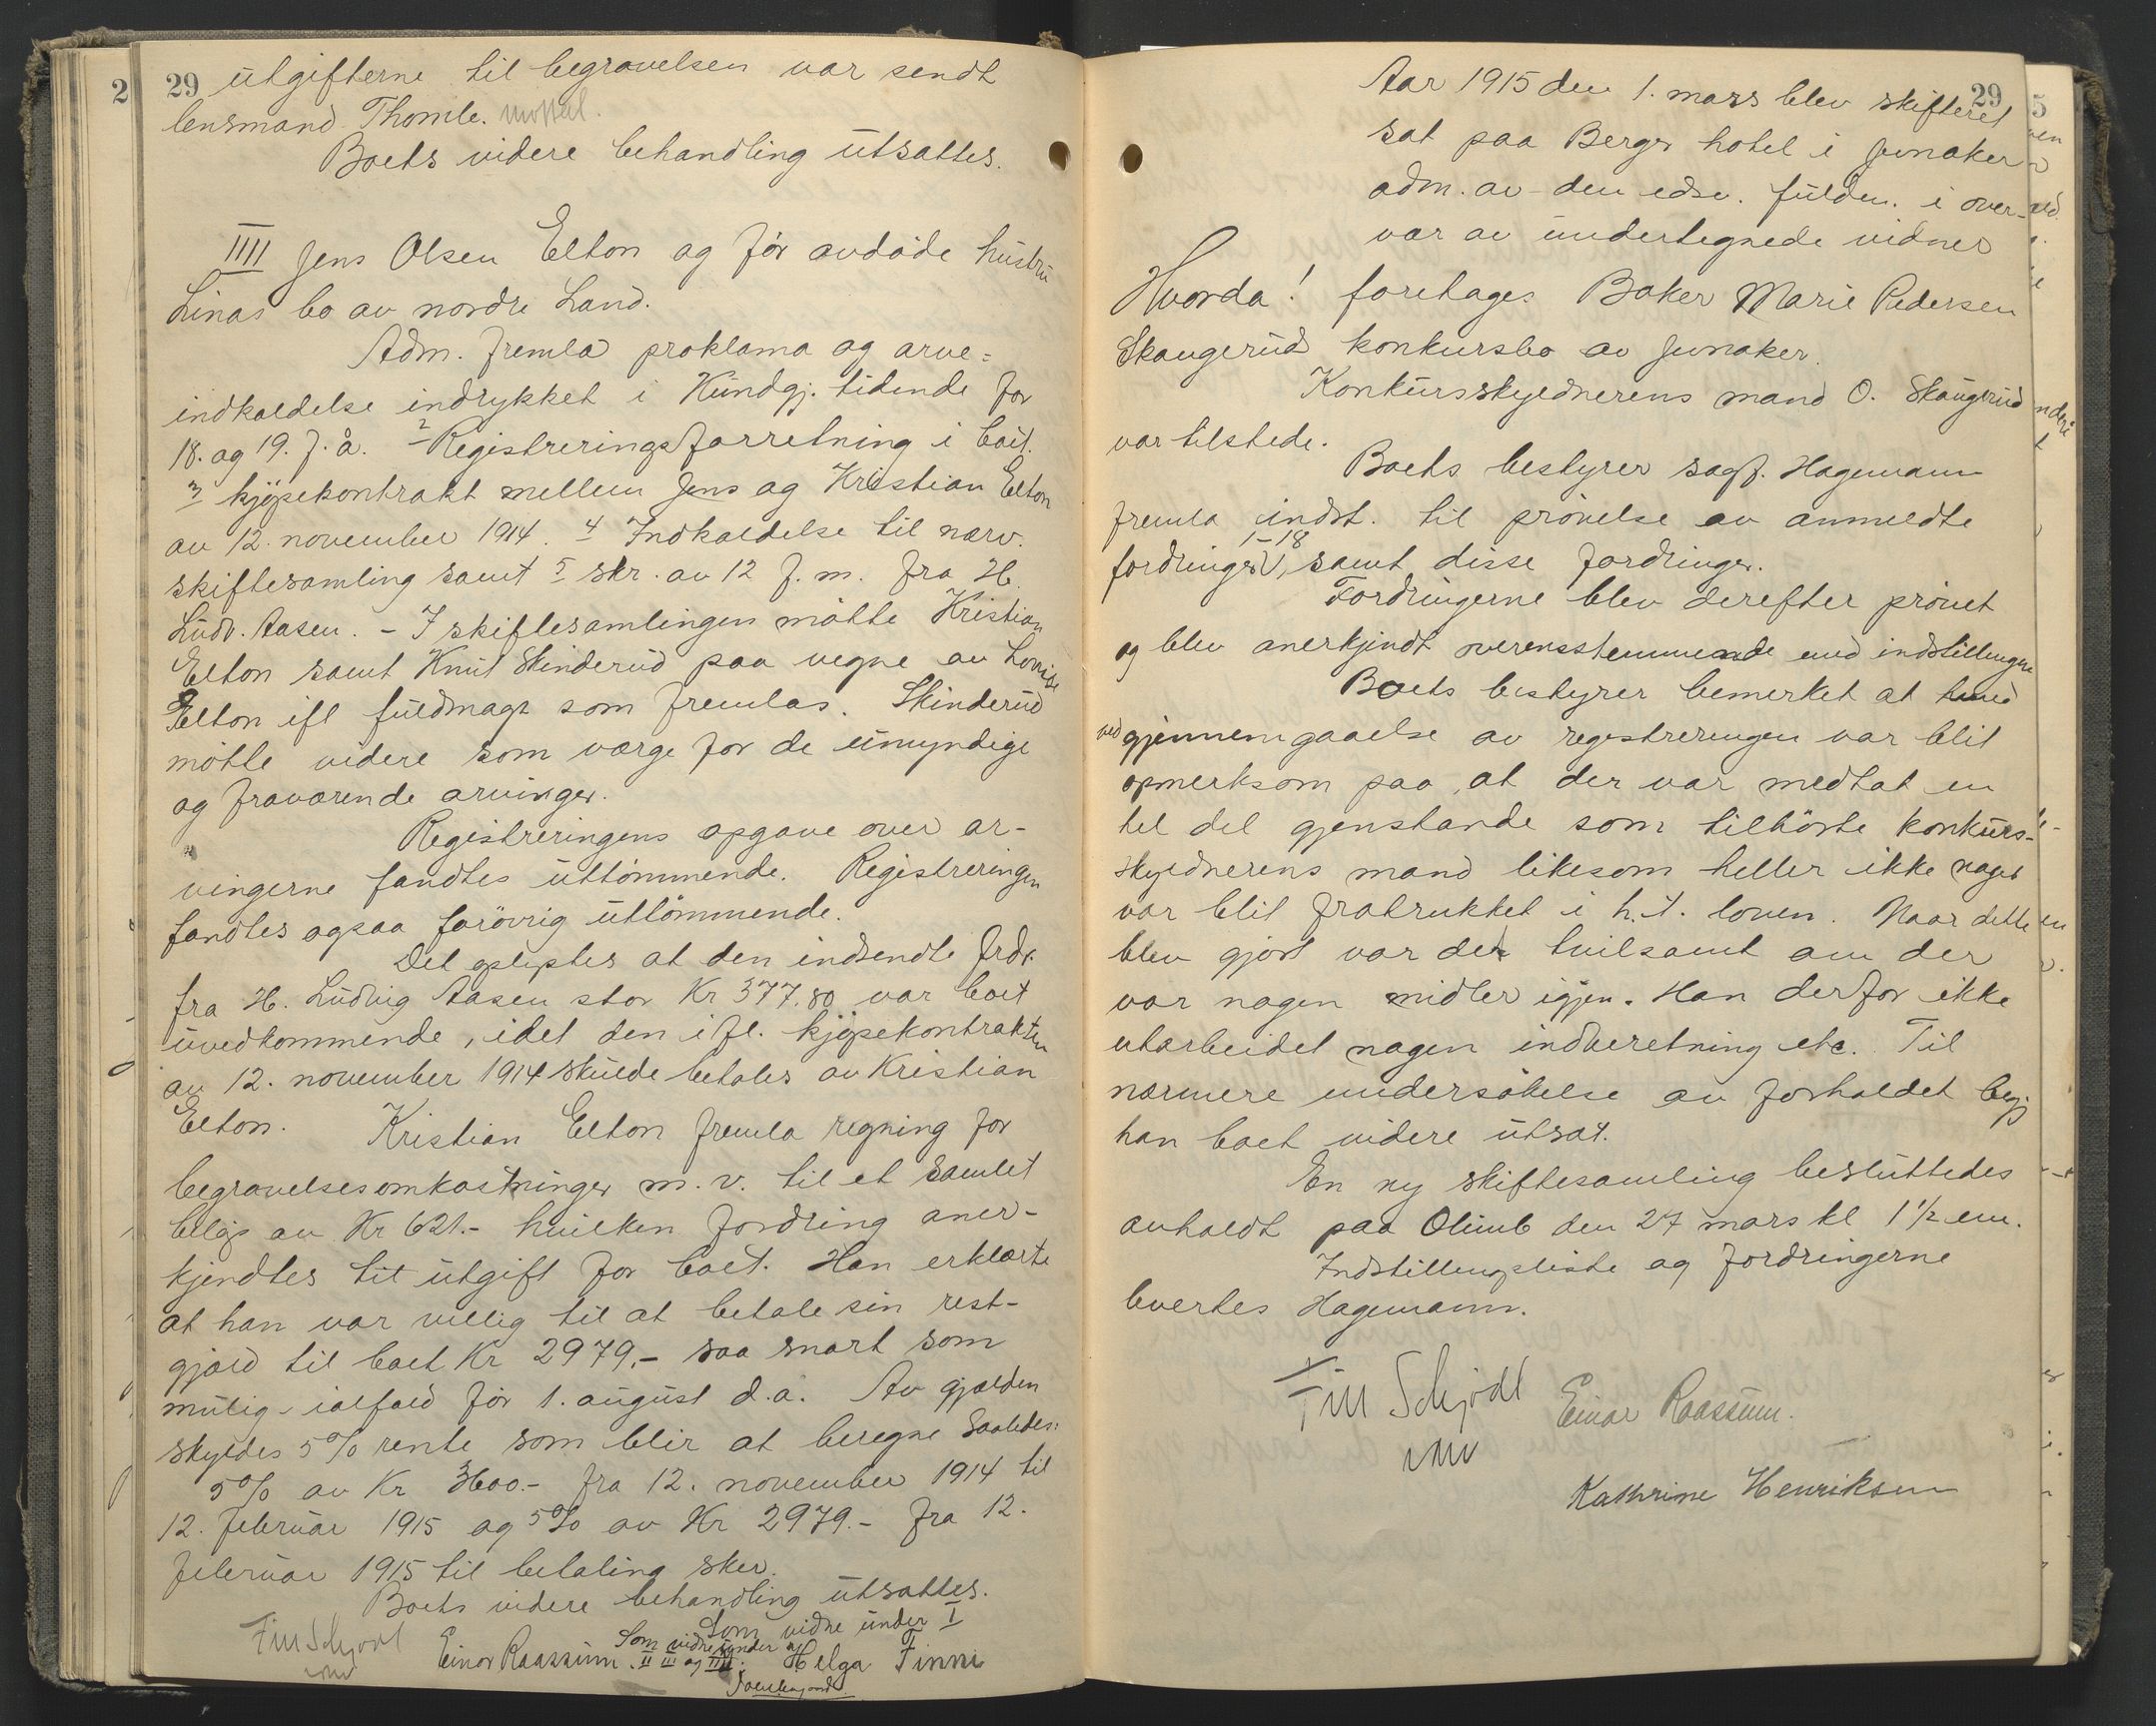 29 utgifterne til begravelsen var sendt
lensmand Thomle.
Boets videre behandling utsattes.
IIII Jens Olsen Elton og før avdøde hustru
Linas bo av nordre Land.
Adm. fremla proklama og arve=
indkaldelse indrykket i Kundgj. tidende for
18. og 19. f. å. 2 Registreringsforretning i boet.
3 kjøpekontrakt mellem Jens og Kristian Elton
av 12. november 1914. 4 Indkaldelse til nærv.
skiftesamling samt 5 skr. av 12 f. m. fra H.
Ludv. Aasen. - I skiftesamlingen møtte Kristian
Elton samt Knut Skinderud paa vegne av Lovise
Elton ifl fuldmagt som fremlas. Skinderud
møtte videre som værge for de umyndige
og fraværende arvinger.
Registreringens opgave over ar-
vingerne fandtes uttømmende. Registreringen
fandtes ogsaa forøvrig uttømmende.
Det oplystes at den indsendte frdr.
fra H. Ludvig Aasen stor Kr 377.80 var boet
uvedkommende, idet den ifl. kjøpekontrakten
av 12. november 1914 skulde betales av Kristian
Elton. Kristian Elton fremla regning for
begravelsesomkostninger m. v. til et samlet
beløp av Kr 621.- hvilken fordring aner-
kjendtes til utgift for boet. Han erklærte
at han var villig til at betale sin rest-
gjæld til boet Kr 2979,- saa snart som
mulig - ialfald før 1. august d.a. Av gjælden
skyldes 5% rente som blir at beregne saaledes:
5% av Kr 3600.- fra 12. november 1914 til
12. februar 1915 og 5% av Kr 2979.- fra 12.
februar 1915 til betaling sker.
Boets videre behandling utsattes.
Som vidne under I
Fin Schjødt Einar Raassum. Som vidne under II III og IIII. Helga Finni
29
Aar 1915 den 1. mars blev skifteret
sat paa Berger hotel i Jevnaker
adm. av den edsv. fuldm. i over-
vær av undertegnede vidner
Hvorda! foretages Baker Marie Pedersen
Skaugerud konkursbo av Jevnaker.
Konkursskyldnerens mand O. Skaugerud
var tilstede.
Boets bestyrer sagf. Hagemann
fremla indst. til prøvelse av anmeldte
fordringer 1-18, samt disse fordringer.
Fordringerne blev derefter prøvet
og blev anerkjendt overensstemmende med indstillingen
Boets bestyrer bemerket at
ved gjennemgaaelse av registreringen var blit
opmerksom paa, at der var medtat en
hel del gjenstande som tilhørte konkurs-
skyldnerens mand likesom heller ikke noget
var blit fratrukket i h. t. loven. Naar dette
blev gjort var det tvilsamt om der
var nogen midler igjen. Han derfor ikke
utarbeidet nogen indberetning etc. Til
nærmere undersøkelse av forholdet beg.
han boet videre utsat.
En ny skiftesamling besluttedes
avholdt paa Olimb den 27 mars kl 1 1/2 em.
Indstillingsliste og fordringerne
levertes Hagemann.
Fin Schjødt Einar Raassum.
Kathrine Henriksen